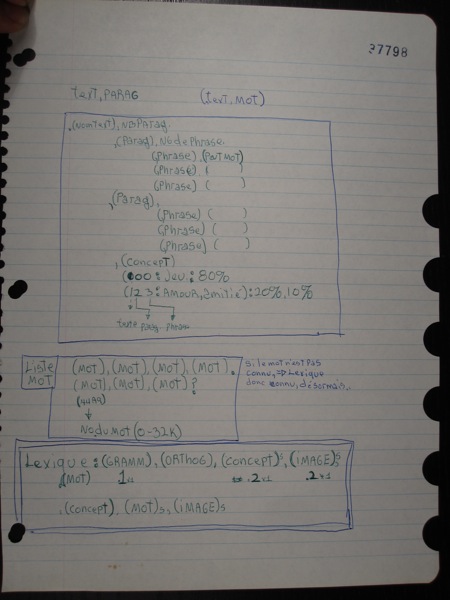 37798
text, PARAG (text, MOT)
.(nomText), NBPArag.
,(Parag), Nb de Phrase
(Phrase), (Part MOT)
(Phrase), ( )
(Phrase) ( )
,(Parag),
(Phrase) ( )
(Phrase) ( )
(Phrase) ( )
,(concept)
(000: Jeu: 80%
(123: AMOUR, amitié): 20%, 10%
texte parag. phrase
Liste MOT
(MOT), (MOT), (MOT), (MOT).
(MOT), (MOT), (MOT)?
(4499)
No du MOT (0-32K)
si le mot n'est pas
connu, => Lexique
donc connu, désormais.
Lexique: (GRAMM), (ORTHOG), (concept)s, (IMAGE)s
(MOT) 1x1 .2x1 .2x1
,(concept), (MOT)s, (IMAGE)s